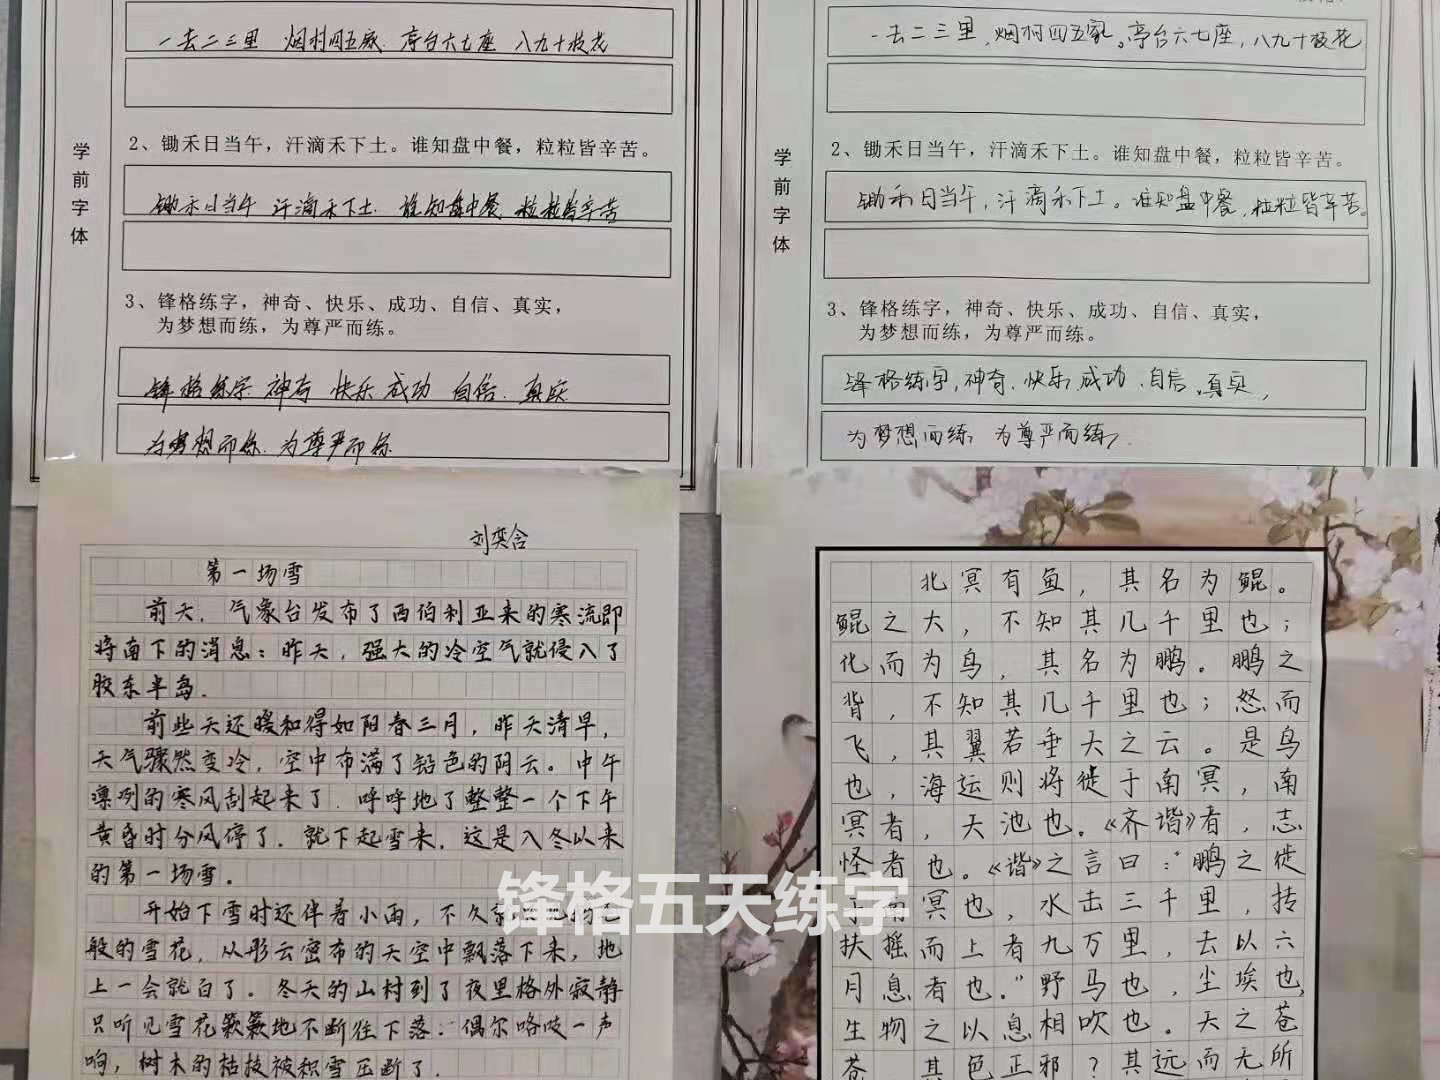 一去二三里 烟村四五家. 亭台六七座 八九十枝花
学前字体
2、锄禾日当午，汗滴禾下土。谁知盘中餐，粒粒皆辛苦。
锄禾日当午 汗滴禾下土. 谁知盘中餐. 粒粒皆辛苦
3、锋格练字，神奇、快乐、成功、自信、真实，
为梦想而练，为尊严而练。
锋格练字. 神奇 快乐 成功 自信. 真实
为梦想而练. 为尊严而练
一去二三里，烟村四五家。亭台六七座，八九十枝花
学前字体
2、锄禾日当午，汗滴禾下土。谁知盘中餐，粒粒皆辛苦。
锄禾日当午，汗滴禾下土。谁知盘中餐，粒粒皆辛苦。
3、锋格练字，神奇、快乐、成功、自信、真实，
为梦想而练，为尊严而练。
锋格练字，神奇、快乐，成功、自信、真实，
为梦想而练，为尊严而练，
刘奕含
第一场雪
前天，气象台发布了西伯利亚来的寒流即
将南下的消息：昨天，强大的冷空气就侵入了
胶东半岛.
前些天还暖和得如阳春三月，昨天清早，
天气骤然变冷，空中布满了铅色的阴云。中午
凛冽的寒风刮起来了，呼呼地了整整一个下午
黄昏时分风停了，就下起雪来，这是入冬以来
的第一场雪。
开始下雪时还伴着小雨，不久
般的雪花，从彤云密布的天空中飘落下来，地
上一会就白了。冬天的山村到了夜里格外寂静
只听见雪花簌簌地不断往下落. 偶尔咯吱一声
响，树木的枯枝被积雪压断了.
北冥有鱼，其名为鲲。
鲲之大，不知其几千里也；
化而为鸟，其名为鹏。鹏之
背，不知其几千里也；怒而
飞，其翼若垂天之云。是鸟
也，海运则将徙于南冥，南
冥者，天池也。《齐谐》者，志
怪者也。《谐》之言曰：“鹏之徙
冥也，水击三千里，抟
扶摇而上者九万里，去以六
月息者也。”野马也，尘埃也，
生物之以息相吹也。天之苍
苍，其色正邪？其远而无所
锋格五天练字